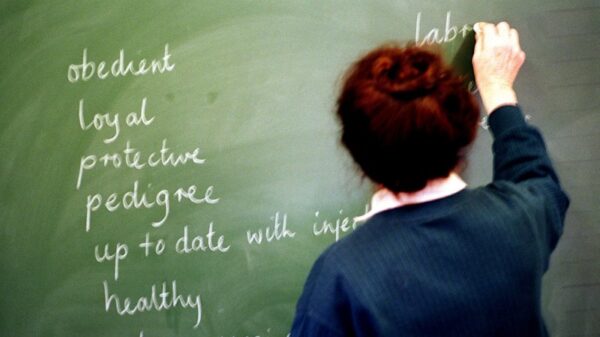 obedient
loyal
protective
pedigree
up to date with
healthy